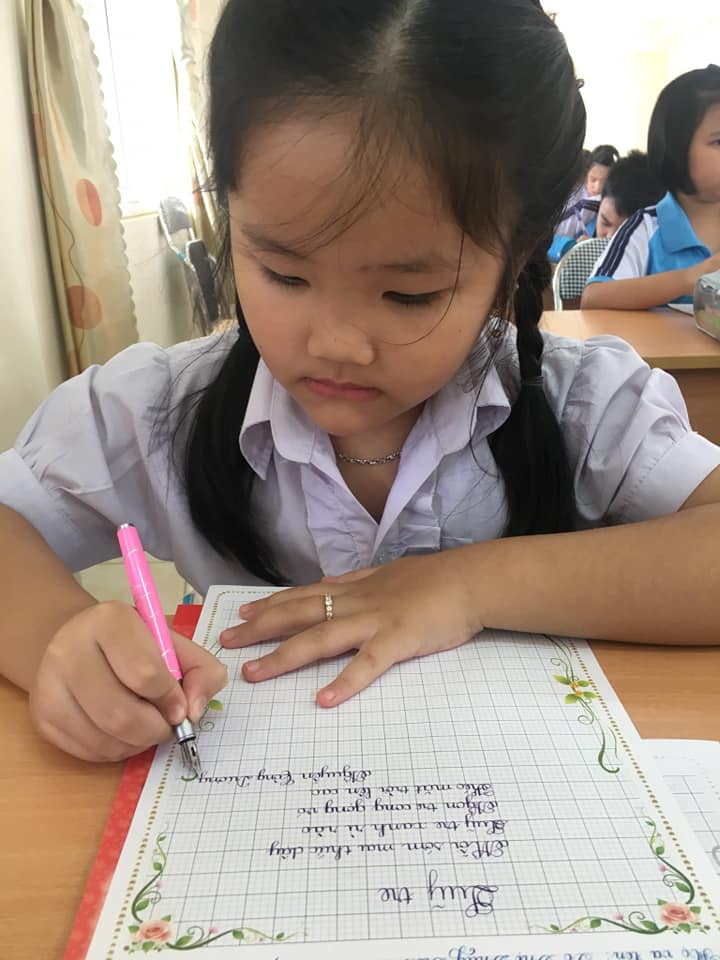 Họ và tên:
Luỹ tre
Mỗi sớm mai thức dậy
Luỹ tre xanh rì rào
Ngọn tre cong gọng vó
Kéo mặt trời lên cao
Nguyễn Công Dương